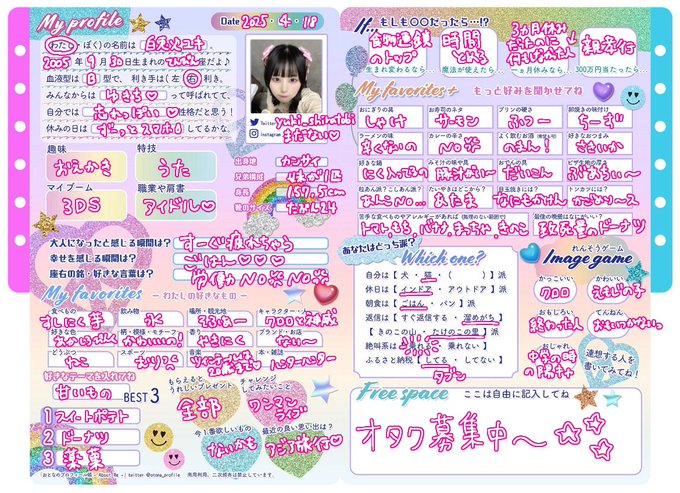 My profile
Date 2025・4・18
わたし ぼく)の名前は 白愛ユキ
2005年 9月30日生まれのてんびん座だよ♪
血液型は B 型で、利き手は(左 右) 利き。
みんなからは ゆきち♡ って呼ばれてて、
自分では 忘れっぽい♡ 性格だと思う!
休みの日は ずーっとスマホ! してるかな。
Twitter yuki_shirotabi
Instagram まだない♡
趣味 おえかき
特技 うた
マイブーム 3DS
職業や肩書 アイドル♡
出身地 カンサイ
兄弟構成 4妹が1匹
身長 157.5cm
靴のサイズ たぶん24
大人になったと感じる瞬間は? すーぐ疲れちゃう
幸せを感じる瞬間は? ごはん♡♡♡
座右の銘・好きな言葉は? 労働NO※NO※
My favorites ーわたしの好きなものー
食べもの すしにく芋
飲物 水
場所・観光地
キャラクター・人 クロロと神威
好きな色
柄・模様・モチーフ かわいい!
香り やさにく
ブランド・お店 ない〜
どうぶつ ねこ
スポーツ おりょく
音楽
本・雑誌 ハンターハンター
好きなテーマを入れてね
甘いもの BEST3
1 スイートポテト
2 ドーナツ
3 薬菓
もらえるとうれしいプレゼント 全部
チャレンジしてみたいこと ワンマンライブ
今1番欲しいもの ないかも
最近の良い思い出は? アジア旅行♡
If... もしも〇〇だったら…!?
食物連鎖のトップ
生まれ変わるなら…
時間とめる
魔法が使えたら…
3カ月休みだったのに何もなかった!
3ヵ月休みなら…
親孝行
300万円当たったら…
My favorites+ もっと好みを聞かせてね
おにぎりの具 しゃけ
お寿司のネタ サーモン
プリンの硬さ ふつー
卵焼きの味付け ちーず
ラーメンの味 辛くないの
カレーの辛さ NO※
よく飲むお酒 のまん!
好きなおつまみ さきいか
好きな鍋 にく入ってるの
みそ汁の味や具 豚汁がいー
おでんの具 だいこん
ピザ生地の厚さ ぶあちぃー
粒あん派?こしあん派? あんこNO...
たいやきはどこから? あたま
目玉焼きには? なにもかけん
トンカツには? かごめソース
苦手な食べものやアレルギーがあれば トマト,もも,バナナ,まっちゃ,きのこ
最後の晩餐はなにがいい? 致死量のドーナツ
あなたはどっち派?
Which one?
自分は【 犬 ・ 猫 ・ (  ) 】派
休日は【 インドア ・ アウトドア 】派
朝食は【 ごはん ・ パン 】派
返信は【 すぐ返信する ・ 溜めがち 】
【 きのこの山 ・ たけのこの里 】派
絶叫系は【 乗れる ・ 乗れない 】
ふるさと納税【 してる ・ してない 】
タブン
れんそうゲーム
Image game
かっこいい クロロ
かわいい えもじの子
おもしろい 終わった人
てんねん おもいつかない。
おしゃれ 中学の時の隣もけ
連想する人を書いてみてね!
Free space ここは自由に記入してね
オタク募集中〜☆☆☆
「おとなのプロフィール帳 - About Me -」 twitter @otona_profile 商用利用、二次頒布は禁止しています。